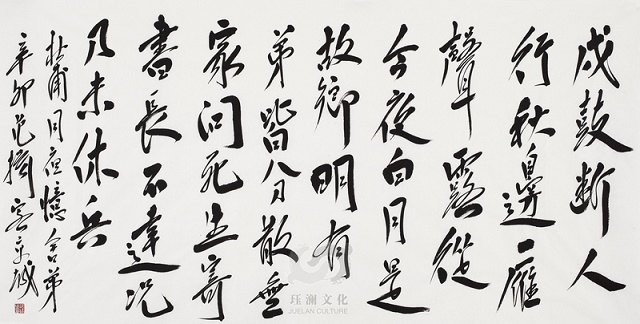 戍鼓斷人
行秋邊一雁
聲露從
今夜白月是
故鄉明有
弟皆分散無
家問死生寄
書長不達況
乃未休兵
杜甫月夜憶舍弟
辛卯范京城
珏澜文化
JUELAN CULTURE